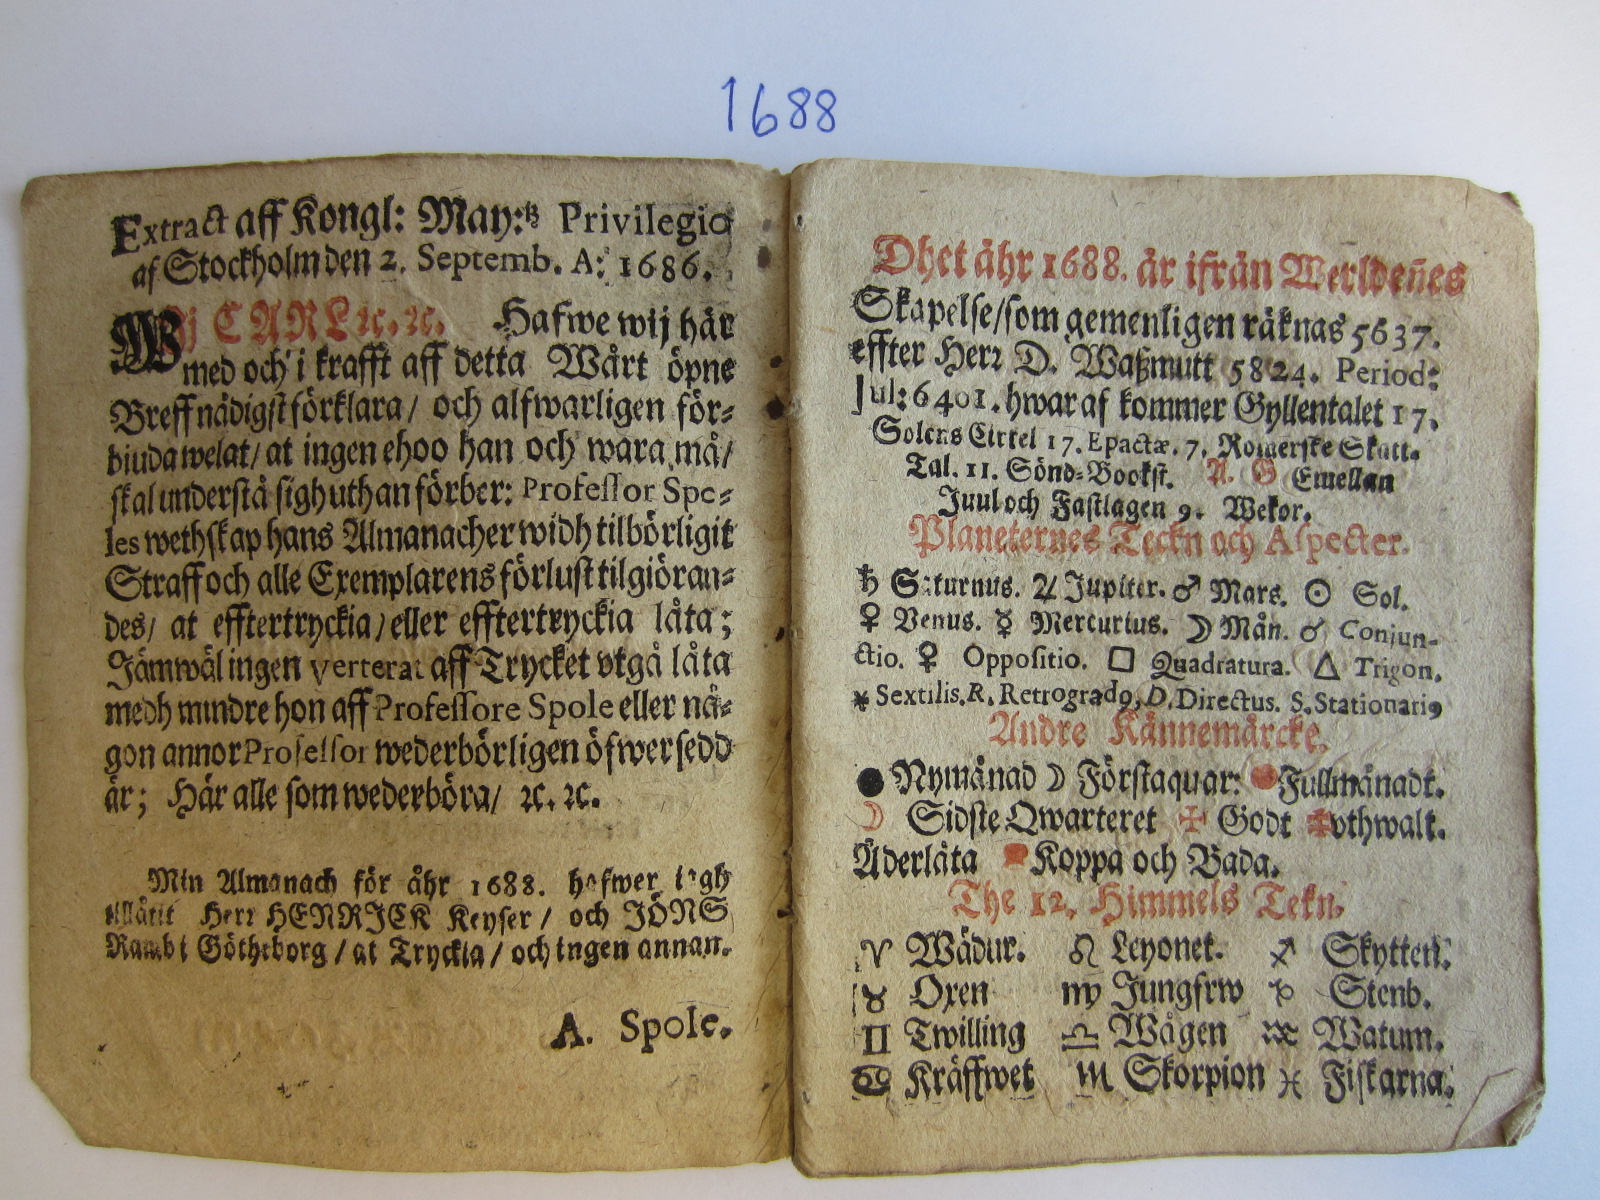 1688
Extract aff Kongl: May:tz Privilegio
af Stockholm den 2. Septemb. A: 1686.
Wij CARL ꝛc. ꝛc. Hafwe wij här
med och i krafft aff detta Wårt öpne
Breff nådigst förklara / och alfwarligen för-
biuda welat / at ingen ehoo han och wara må /
skal understå sigh uthan förber: Professor Spo-
les wethskap hans Almanacher widh tilbörligit
Straff och alle Exemplarens förlust tilgiöran-
des / at efftertryckia / eller efftertryckia låta ;
Jämwäl ingen verterat aff Trycket vtgå låta
medh mindre hon aff Professore Spole eller nå-
gon annor Professor wederbörligen öfwersedd
är ; Här alle som wederböra / ꝛc. ꝛc.
Min Almanach för åhr 1688. hafwer iagh
tillåtit Herr HENRICK Keyser / och JÖNS
Ramb i Götheborg / at Tryckia / och ingen annan.
A. Spole.
Dhet åhr 1688. är ifrån Werldenes
Skapelse / som gemenligen räknas 5637.
effter Herr D. Waßmutt 5824. Period:
Jul: 6401. hwar af kommer Gyllentalet 17.
Solens Cirkel 17. Epactæ. 7. Romerske Skatt-
Tal. 11. Sönd-Bookst. A. G Emellan
Juul och Fastlagen 9. Wekor.
Planeternes Teckn och Aspecter.
♄ Saturnus. ♃ Jupiter. ♂ Mars. ☉ Sol.
♀ Venus. ☿ Mercurius. ☽ Mån. ☌ Conjun-
ctio. ♀ Oppositio. □ Quadratura. △ Trigon.
⚹ Sextilis. R. Retrogradꝰ, D. Directus. S. Stationariꝰ
Andre Kännemärcke.
● Nymånad ☽ Förstaquar: ● Fullmånadt.
☽ Sidste Qwarteret ✠ Godt ✠ vthwalt.
Åderlåta Koppa och Bada.
The 12. Himmels Tekn.
♈ Wädur. ♌ Leyonet. ♐ Skytten.
♉ Oxen ♍ Jungfrw ♑ Stenb.
♊ Twilling ♎ Wågen ♒ Watum.
♋ Kräffwet ♏ Skorpion ♓ Fiskarna.